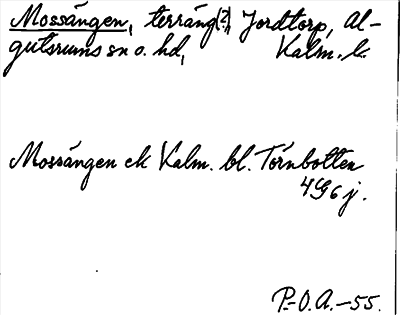 Mossängen, terräng(?), Jordtorp, Al-
gutsrums sn o. hd, Kalm. l.
Mossängen ek Kalm. bl. Törnbotten
4G6j.
P.-O.A.-55.